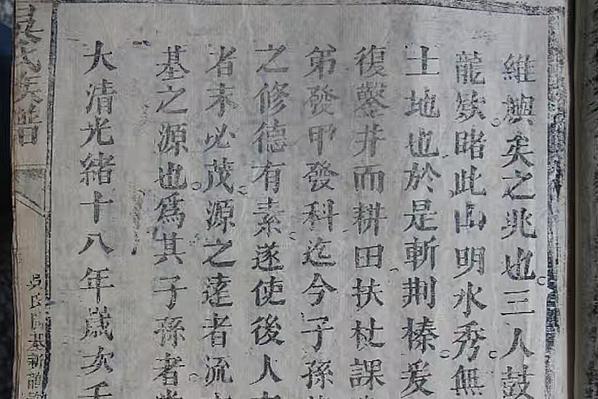 維嶼矣之兆也三人鼓
龍欻略此山明水秀無
土地也於是斬荆榛爰
復鑿井而耕田扶杖課
弟發甲發科迄今子孫
之修德有素遂使後人
者末必茂源之遠者流
基之源也爲其子孫者
大清光緒十八年歲次壬
吳氏族譜
吳氏開基新譜